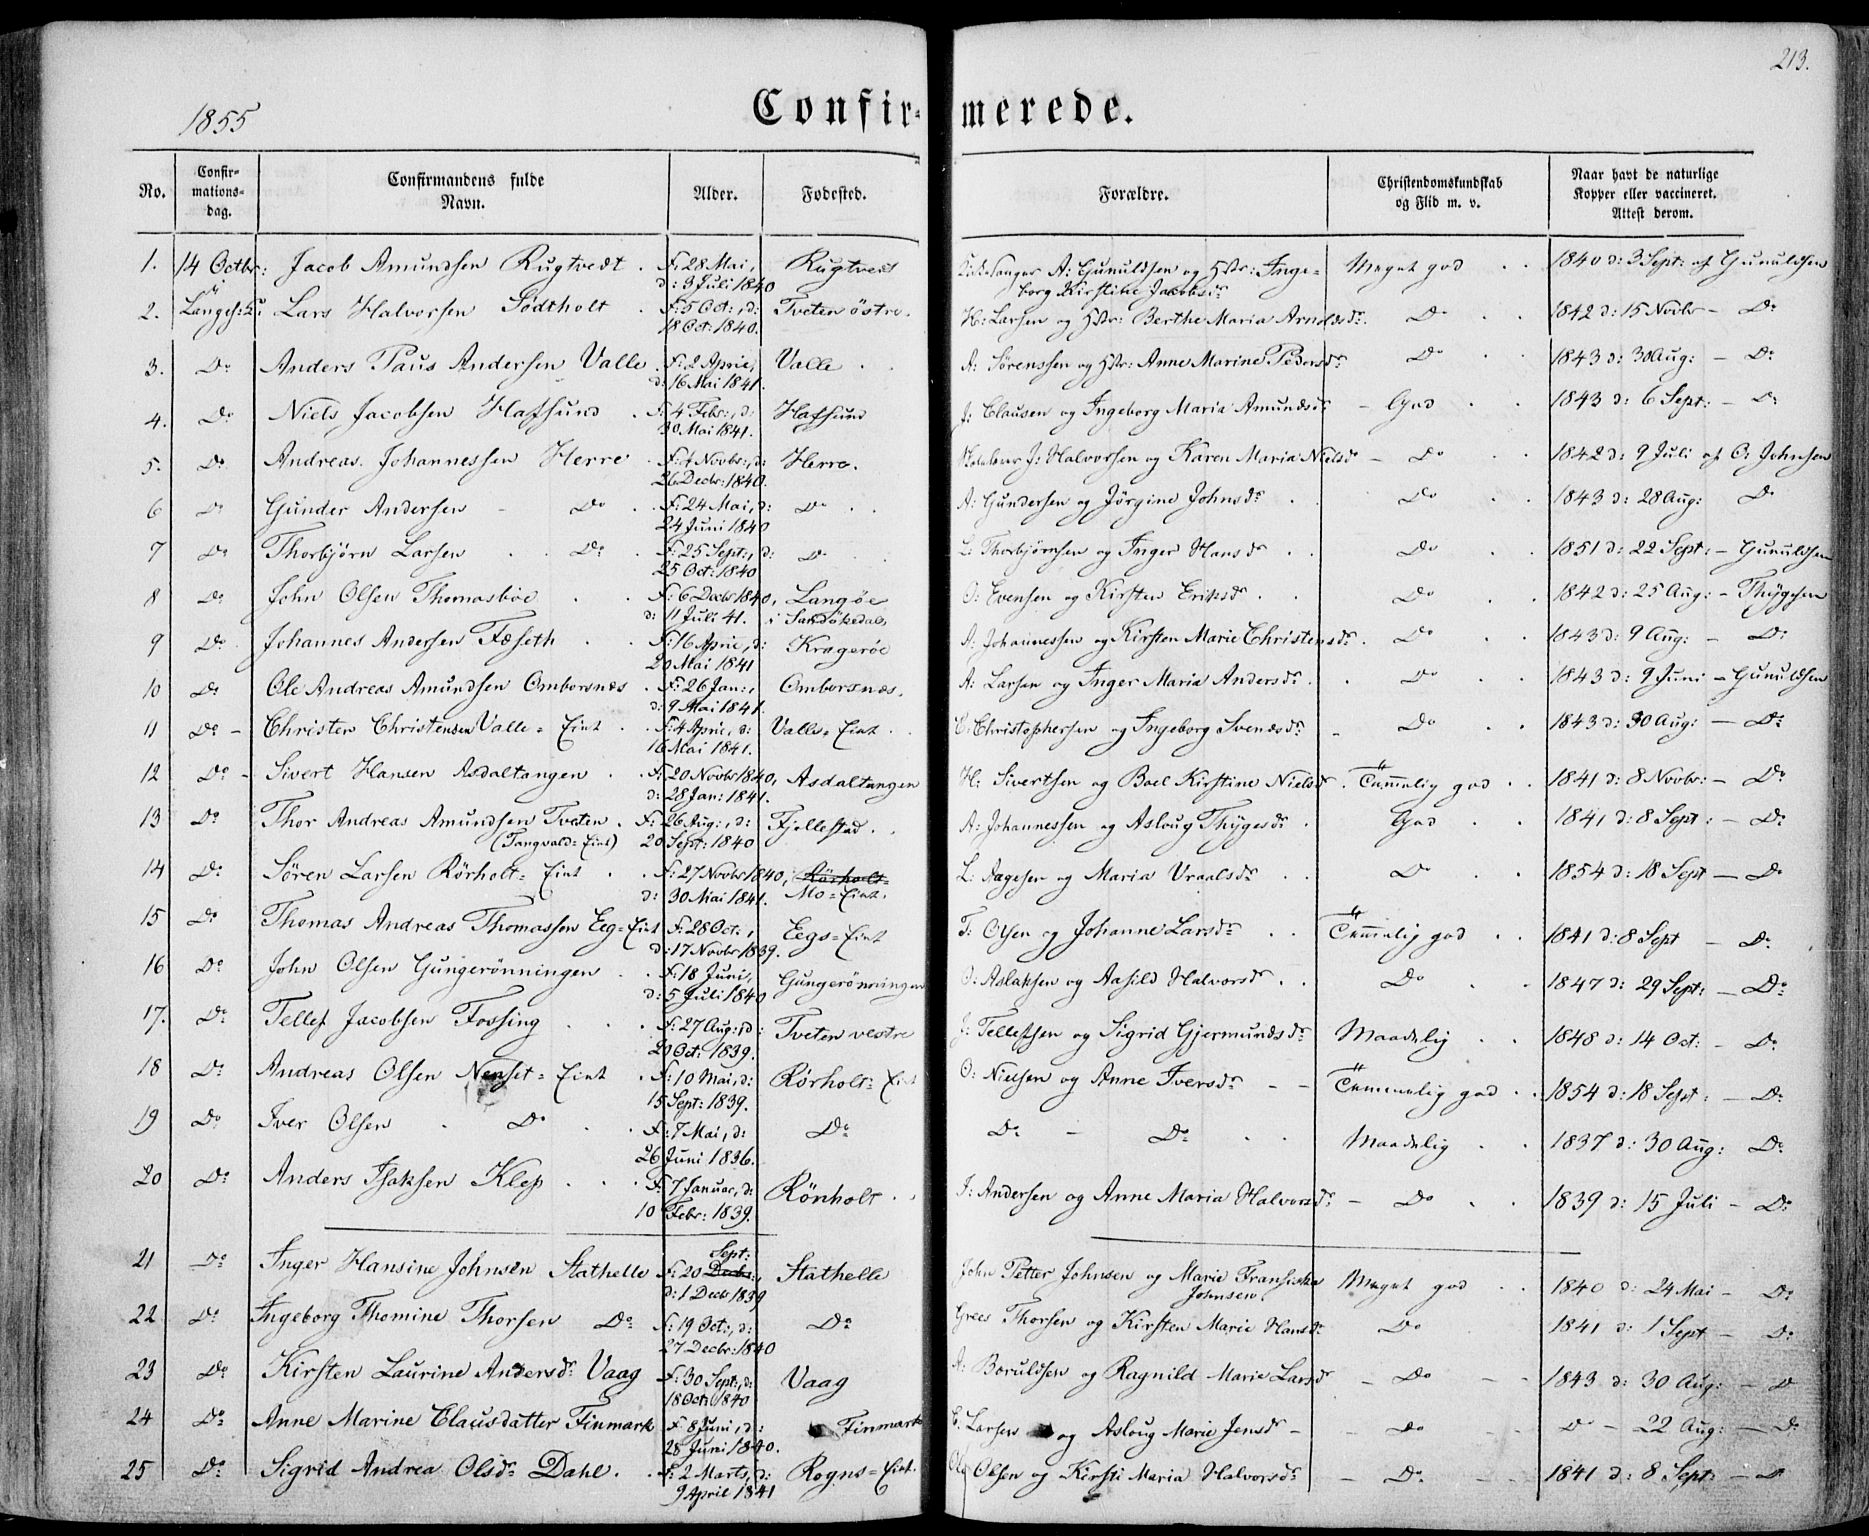 213.
1855
Confir- merede.
No. | Confirmations-dag. | Confirmandens fulde Navn. | Alder. | Fødested. | Forældre. | Christendomskundskab og Flid m. v. | Naar havt de naturlige Kopper eller vaccineret. Attest derom.
1. 14 Octbr: Jacob Amundsen Rugtvedt . F: 28 Mai, d: 3 Juli 1840 Rugtvedt A: Gunuldsen og Hstr: Ingeborg Kirstine Jacobsdr Meget god . . 1840 d: 3 Sept: af Gunuldsen
2. Langes: K. Lars Halvorsen Södtholt . F: 5 Oct:, d: 18 Oct: 1840. Tveten östre. H: Larsen og Hstr: Berthe Maria Arnoldsdr. Do . . 1842 d: 15 Novbr – Do
3. Do Anders Paus Andersen Valle . F: 2 April, d: 16 Mai 1841. Valle . . A: Sörenssen og Hstr: Anne Marine Pedersdr Do . . 1843 d: 30 Aug: – Do
4. Do Niels Jacobsen Hafsund . F: 4 Febr:, d: 30 Mai 1841. Hafsund J: Clausen og Ingeborg Maria Amundsdr – God . . 1843 d: 6 Sept: – Do
5. Do Andreas Johannessen Herre . F: 4 Novbr:, d: 26 Decbr: 1840. Herre. J: Halvorsen og Karen Maria Nielsdr – Do . . 1842 d: 9 Juli af O: Johnsen
6 Do Gunder Andersen – Do . . F: 24 Mai, d: 24 Juni 1840 Do . . A: Gundersen og Jörgine Johnsdr . . Do . . 1843 d: 28 Aug: Do
7 Do Thorbjörn Larsen . . Do . . F: 25 Sept:, d: 25 Oct: 1840 Do . L: Thorbjörnsen og Inger Hansdr . . Do . . 1851 d: 22 Sept: – Gunuldsen
8 Do John Olsen Thomasböe . . F: 6 Decbr 1840, d: 11 Juli 41. Langöe i Sandökedal O: Evensen og Kirsten Eriksdr . . Do . . 1842 d: 25 Aug: – Thygesen
9 Do Johannes Andersen Fæseth . . F: 16 April, d: 20 Mai 1841 Krageröe A: Johannessen og Kirsten Marie Christensdr. Do . . 1843 d: 9 Aug: – Do
10 Do Ole Andreas Amundsen Omborsnes . F: 26 Jan:, d: 9 Mai 1841. Omborsnes. A: Larsen og Inger Maria Andersdr . . Do . . 1843 d: 9 Juni – Gunuldsen
11 Do – Christen Christensen Valle-Eiet . . F: 4 April, d: 16 Mai 1841. Valle-Eiet . . C: Christophersen og Ingeborg Svendsdr – Do . . 1843 d: 30 Aug: – Do
12 Do – Sivert Hansen Asdaltangen . . F: 20 Novbr 1840, d: 28 Jan: 1841. Asdaltangen H: Sivertsen og Boel Kirstine Nielsdr . Temmelig god . . 1841 d: 8 Novbr: – Do
13 Do Thor Andreas Amundsen Tveten . (Tangvald-Eiet) F: 26 Aug:, d: 20 Sept: 1840 Fjellestad . . A: Johannessen og Asloug Thygesdr . God . . 1841 d: 8 Sept: – Do
14 Do Sören Larsen Rörholt-Eiet . . F: 27 Novbr 1840, d: 30 Mai 1841. Rörholt- Mo-Eiet. L: Aagesen og Maria Vraalsdr . . Do . . 1854 d: 18 Sept – Do
15 Do Thomas Andreas Thomassen Eeg-Eiet F: 28 Oct:, d: 17 Novbr 1839. Eegs-Eiet T: Olsen og Johanne Larsdr . . Temmelig god . . 1841 d: 8 Sept – Do
16 Do John Olsen Gungerönningen . . F: 18 Juni, d: 5 Juli 1840 Gungerönningen O: Aslaksen og Aasild Halvorsdr . . Do . . 1847 d: 29 Sept: – Do
17. Do Tellef Jacobsen Fossing . . . F: 27 Aug:, d: 20 Oct: 1839. Tveten vestre J: Tellefsen og Sigrid Gjermundsdr Maadelig . . 1848 d: 14 Oct: – Do
18 Do Andreas Olsen Nenset-Eiet . F: 10 Mai, d: 15 Sept: 1839. Rörholt-Eiet O: Nielsen og Anne Iversdr – – Temmelig god . . 1854 d: 18 Sept: – Do
19 Do Iver Olsen . Do . . F: 7 Mai, d: 26 Juni 1836. Do Do – Do . . Maadelig . . 1837 d: 30 Aug: Do
20 Do Anders Isaksen Klep . . . F: 7 Januar, d: 10 Febr: 1839. Rörholt . . I: Andersen og Anne Maria Halvorsdr – Do . . 1839 d: 15 Juli – Do
21 Do Inger Hansine Johnsen Stathelle F: 20 Decbr: Sept:, d: 1 Decbr 1839 Stathelle John Petter Johnsen og Marie Fransiska Johnsen. Meget god . . 1840 d: 24 Mai – Do
22 Do Ingeborg Thomine Thorsen Do F: 19 Oct:, d: 27 Decbr: 1840 Do Grees Thorsen og Kirsten Marie Hansdr Do 1841 d: 1 Sept – Do
23 Do Kirsten Laurine Andersdr Vaag F: 30 Sept:, d: 18 Oct: 1840 Vaag A: Boruldsen og Ragnild Marie Larsdr – Do – – 1843 d: 30 Aug: – Do
24 Do Anne Marine Clausdatter Finmark F: 8 Juni, d: 28 Juni 1840. Finmark C: Larsen og Asloug Marie Jensdr – – Do – – Do – 22 Aug: – Do
25 Do Sigrid Andrea Olsdr Dahl . . F: 2 Marts, d: 9 April 1841 Rogns-Eiet. Ole Olsen og Kirsti Maria Halvorsdr – Do – – 1841 d: 8 Sept: – Do